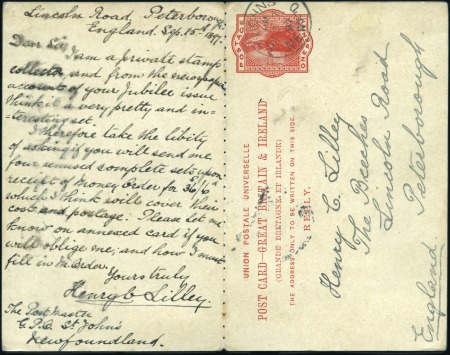 Lincoln Road, Peterboro'
England. Sep. 15th 1897.
Dear Sir,
I am a private stamp
collector, and from the newspaper
accounts of your Jubilee issue
think it a very pretty and in-
teresting set.
I therefore take the libity
of asking if you will send me
four unused complete sets upon
receipt of Money Order for
which I think will cover their
cost and postage. Please let me
know on annexed card if you
will oblige me; and how I must
fill in M. Order.
Yours truly
Henry C Lilley.
The Postmaster
G.P.O. St John's
Newfoundland.
POSTAGE
ONE
UNION POSTALE UNIVERSELLE
POST CARD-GREAT BRITAIN & IRELAND
(GRANDE BRETAGNE, ET IRLANDE)
THE ADDRESS ONLY TO BE WRITTEN ON THIS SIDE.
REPLY.
Henry C. Lilley
The Beeches
Lincoln Road
Peterborough
England